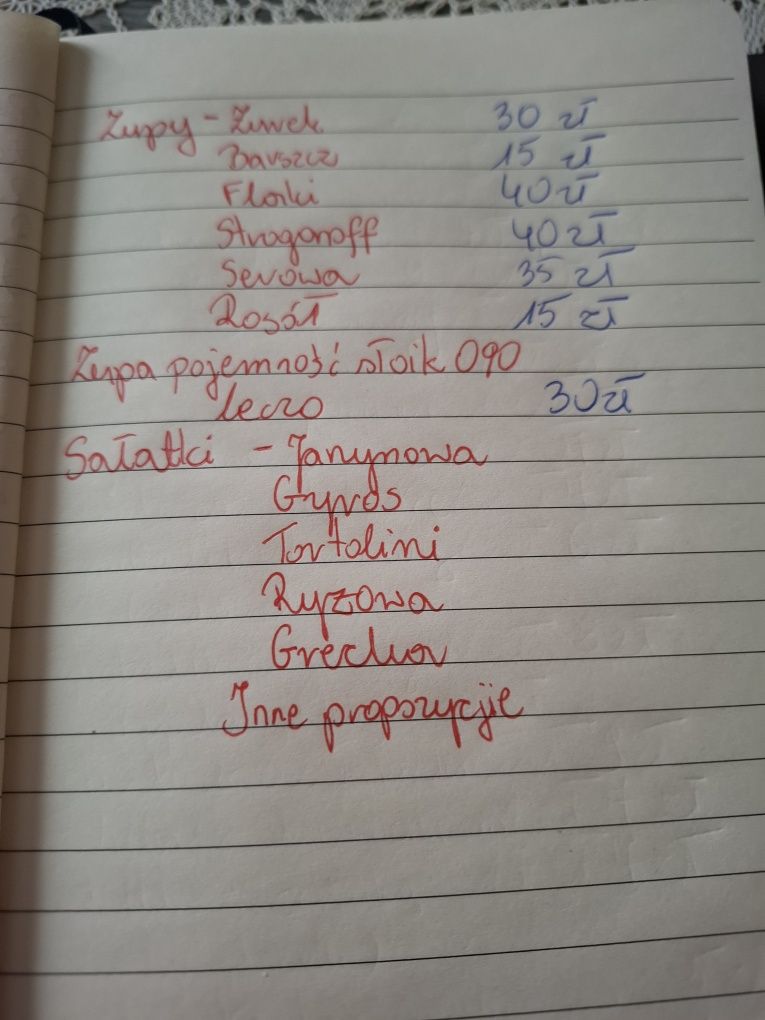 Zupy - Żurek 30 zł
Barszcz 15 zł
Flaki 40 zł
Strogonoff 40 zł
Serowa 35 zł
Rosół 15 zł
Zupa pojemność słoik 090
leczo 30 zł
Sałatki - Jarzynowa
Gyros
Tortolini
Ryżowa
Grecka
Inne propozycjie